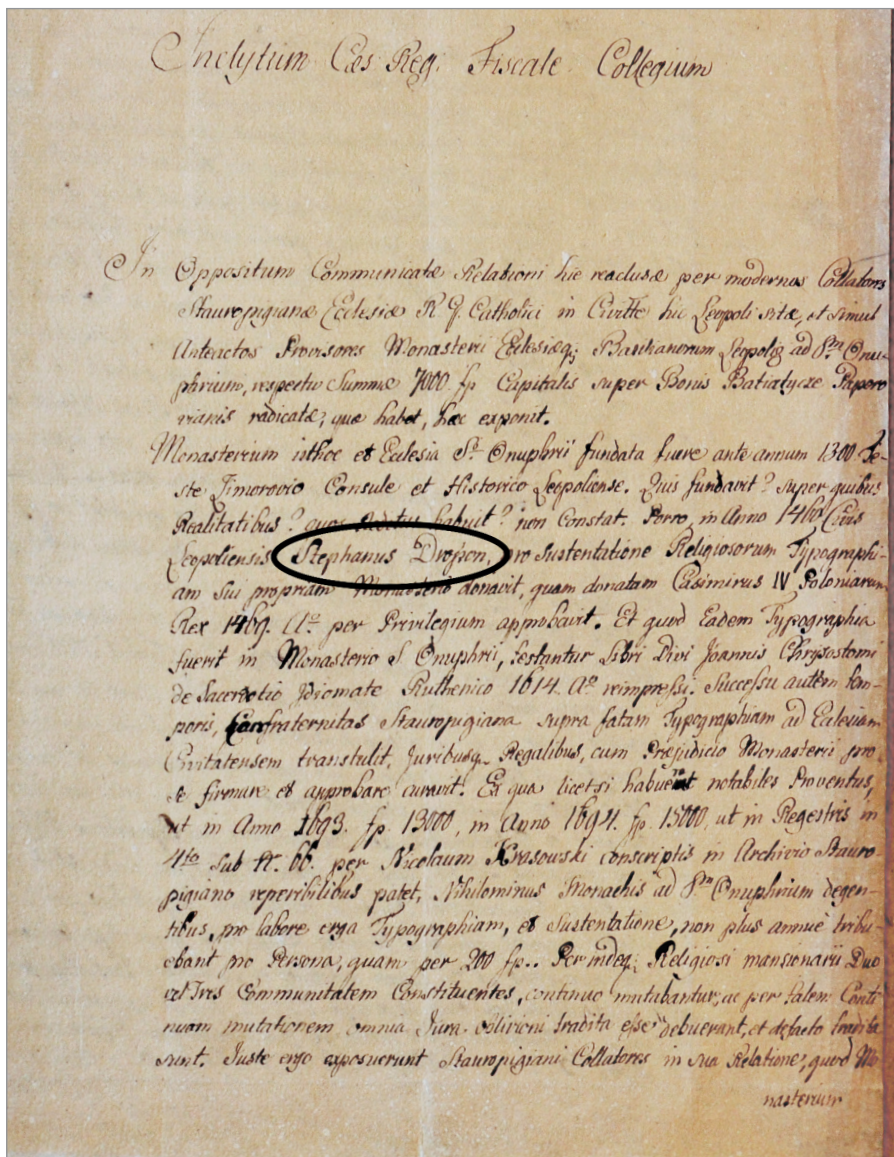 Inclytum Cæs Reg. Fiscale Collegium
In Oppositum Communicatæ Relationi hic reaclusæ per modernos Collatores
Stauropigianæ Ecclesiæ R. G. Catholici in Civitte hic Leopoli sitæ, et simul
Anteactos Provisores Monasterii Ecclesiæq; Basilianorum Leopolis ad S. Onu-
phrium, respectu Summæ 7000 fp Capitalis super Bonis Batiatycze Paporo
vianis radicatæ; quæ habet, hæc exponit.
Monasterium isthoc et Ecclesia St. Onuphrii fundata fuere ante annum 1300 Te-
ste Zimorovio Consule et Historico Leopoliense. Quis fundavit? super quibus
Realitatibus? quos Reditus habuit? non Constat. Porro, in Anno 1460 Civis
Leopoliensis Stephanus Dropan, pro Sustentatione Religiosorum Typographi-
am Sui propriam Monasterio donavit, quam donatam Casimirus IV Poloniarum
Rex 1469. Ao. per Privilegium approbavit. Et quod Eadem Typographia
fuerit in Monasterio S Onuphrii, testantur Libri Divi Joannis Chrysostomi
de Sacerdotio Idiomate Ruthenico 1614. Ao reimpressi. Successu autem tem-
poris, Confraternitas Stauropigiana supra fatam Typographiam ad Ecclesiam
Civitatensem transtulit, Juribusq. Regalibus, cum Præjudicio Monasterii pro
se firmare et approbare curavit. Ex qua licetsi habuerit notabiles Proventus,
ut in Anno 1693. fp. 13000, in Anno 1694. fp. 15000, ut in Regestris in
4to Sub N. 66. per Nicolaum Krasowski conscriptis in Archivio Stauro-
pigiano reperibilibus patet, Nihilominus Monachis ad S. Onuphrium degen-
tibus, pro labore erga Typographiam, et Sustentatione, non plus annuè tribu-
ebant pro Persona, quam per 200 fp.. Perindeq; Religiosi mansionarii Duo
vel Tres Communitatem Constituentes, continuo mutabantur, ac per talem Conti
nuam mutationem omnia Jura oblivioni tradita esse debuerant, et defacto tradita
sunt. Juste ergo exposuerunt Stauropigiani Collatores in sua Relatione, quod Mo
nasterium